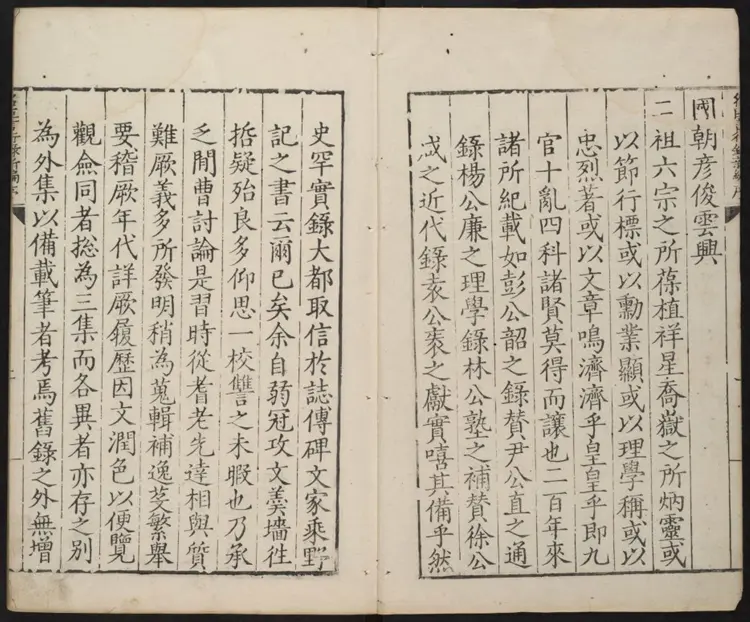 國朝彥俊雲興
二祖六宗之所葆植祥星喬嶽之所炳靈或
以節行標或以勳業顯或以理學稱或以
忠烈著或以文章鳴濟濟乎皇皇乎即九
官十亂四科諸賢莫得而讓也二百年來
諸所紀載如彭公韶之錄贊尹公直之通
錄楊公廉之理學錄林公塾之補贊徐公
咸之近代錄袁公袠之獻實嘻其備乎然
史罕實錄大都取信於誌傳碑文家乘野
記之書云爾已矣余自弱冠攻文羹墻徃
哲疑殆良多仰思一校讐之未暇也乃承
乏閒曹討論是習時從耆老先達相與質
難厥義多所發明稍為蒐輯補逸芟繁舉
要稽厥年代詳厥履歷因文潤色以便覽
觀僉同者捴為三集而各異者亦存之別
為外集以備載筆者考焉舊錄之外無增